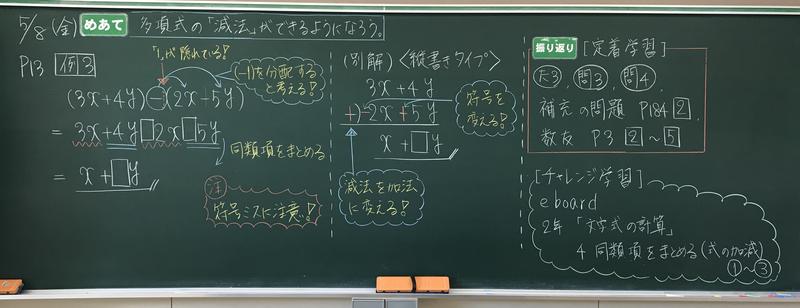 5/8(金) めあて 多項式の「減法」ができるようになろう。
P13 例3
「1」が隠れている!
(-1)を分配すると考える!
(3x+4y)-(2x-5y)
=3x+4y□2x□5y
同類項をまとめる
=x+□y
注 符号ミスに注意!
(別解)〈縦書きタイプ〉
3x+4y
+)-2x+5y
x+□y
符号を変える!
減法を加法に変える!
振り返り [定着学習]
問3, 問4,
補充の問題 P184 2,
数友 P3 2~5
[チャレンジ学習]
eboard
2年「文字式の計算」
4 同類項をまとめる(式の加減)
①~③